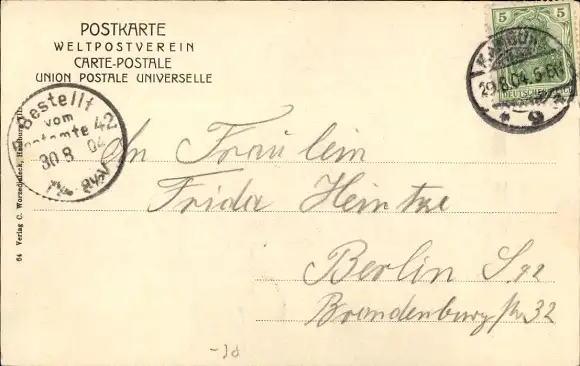 POSTKARTE
WELTPOSTVEREIN
CARTE-POSTALE
UNION POSTALE UNIVERSELLE
5 5
DEUTSCHES
HAMBURG
29.8.04. 6-
* 9
Bestellt
vom
Postamte 42
30 8 04
An Fräulein
Frida Heintze
Berlin S.42
Brandenburgstr 32
64 Verlag C. Worzedialeck, Hamburg